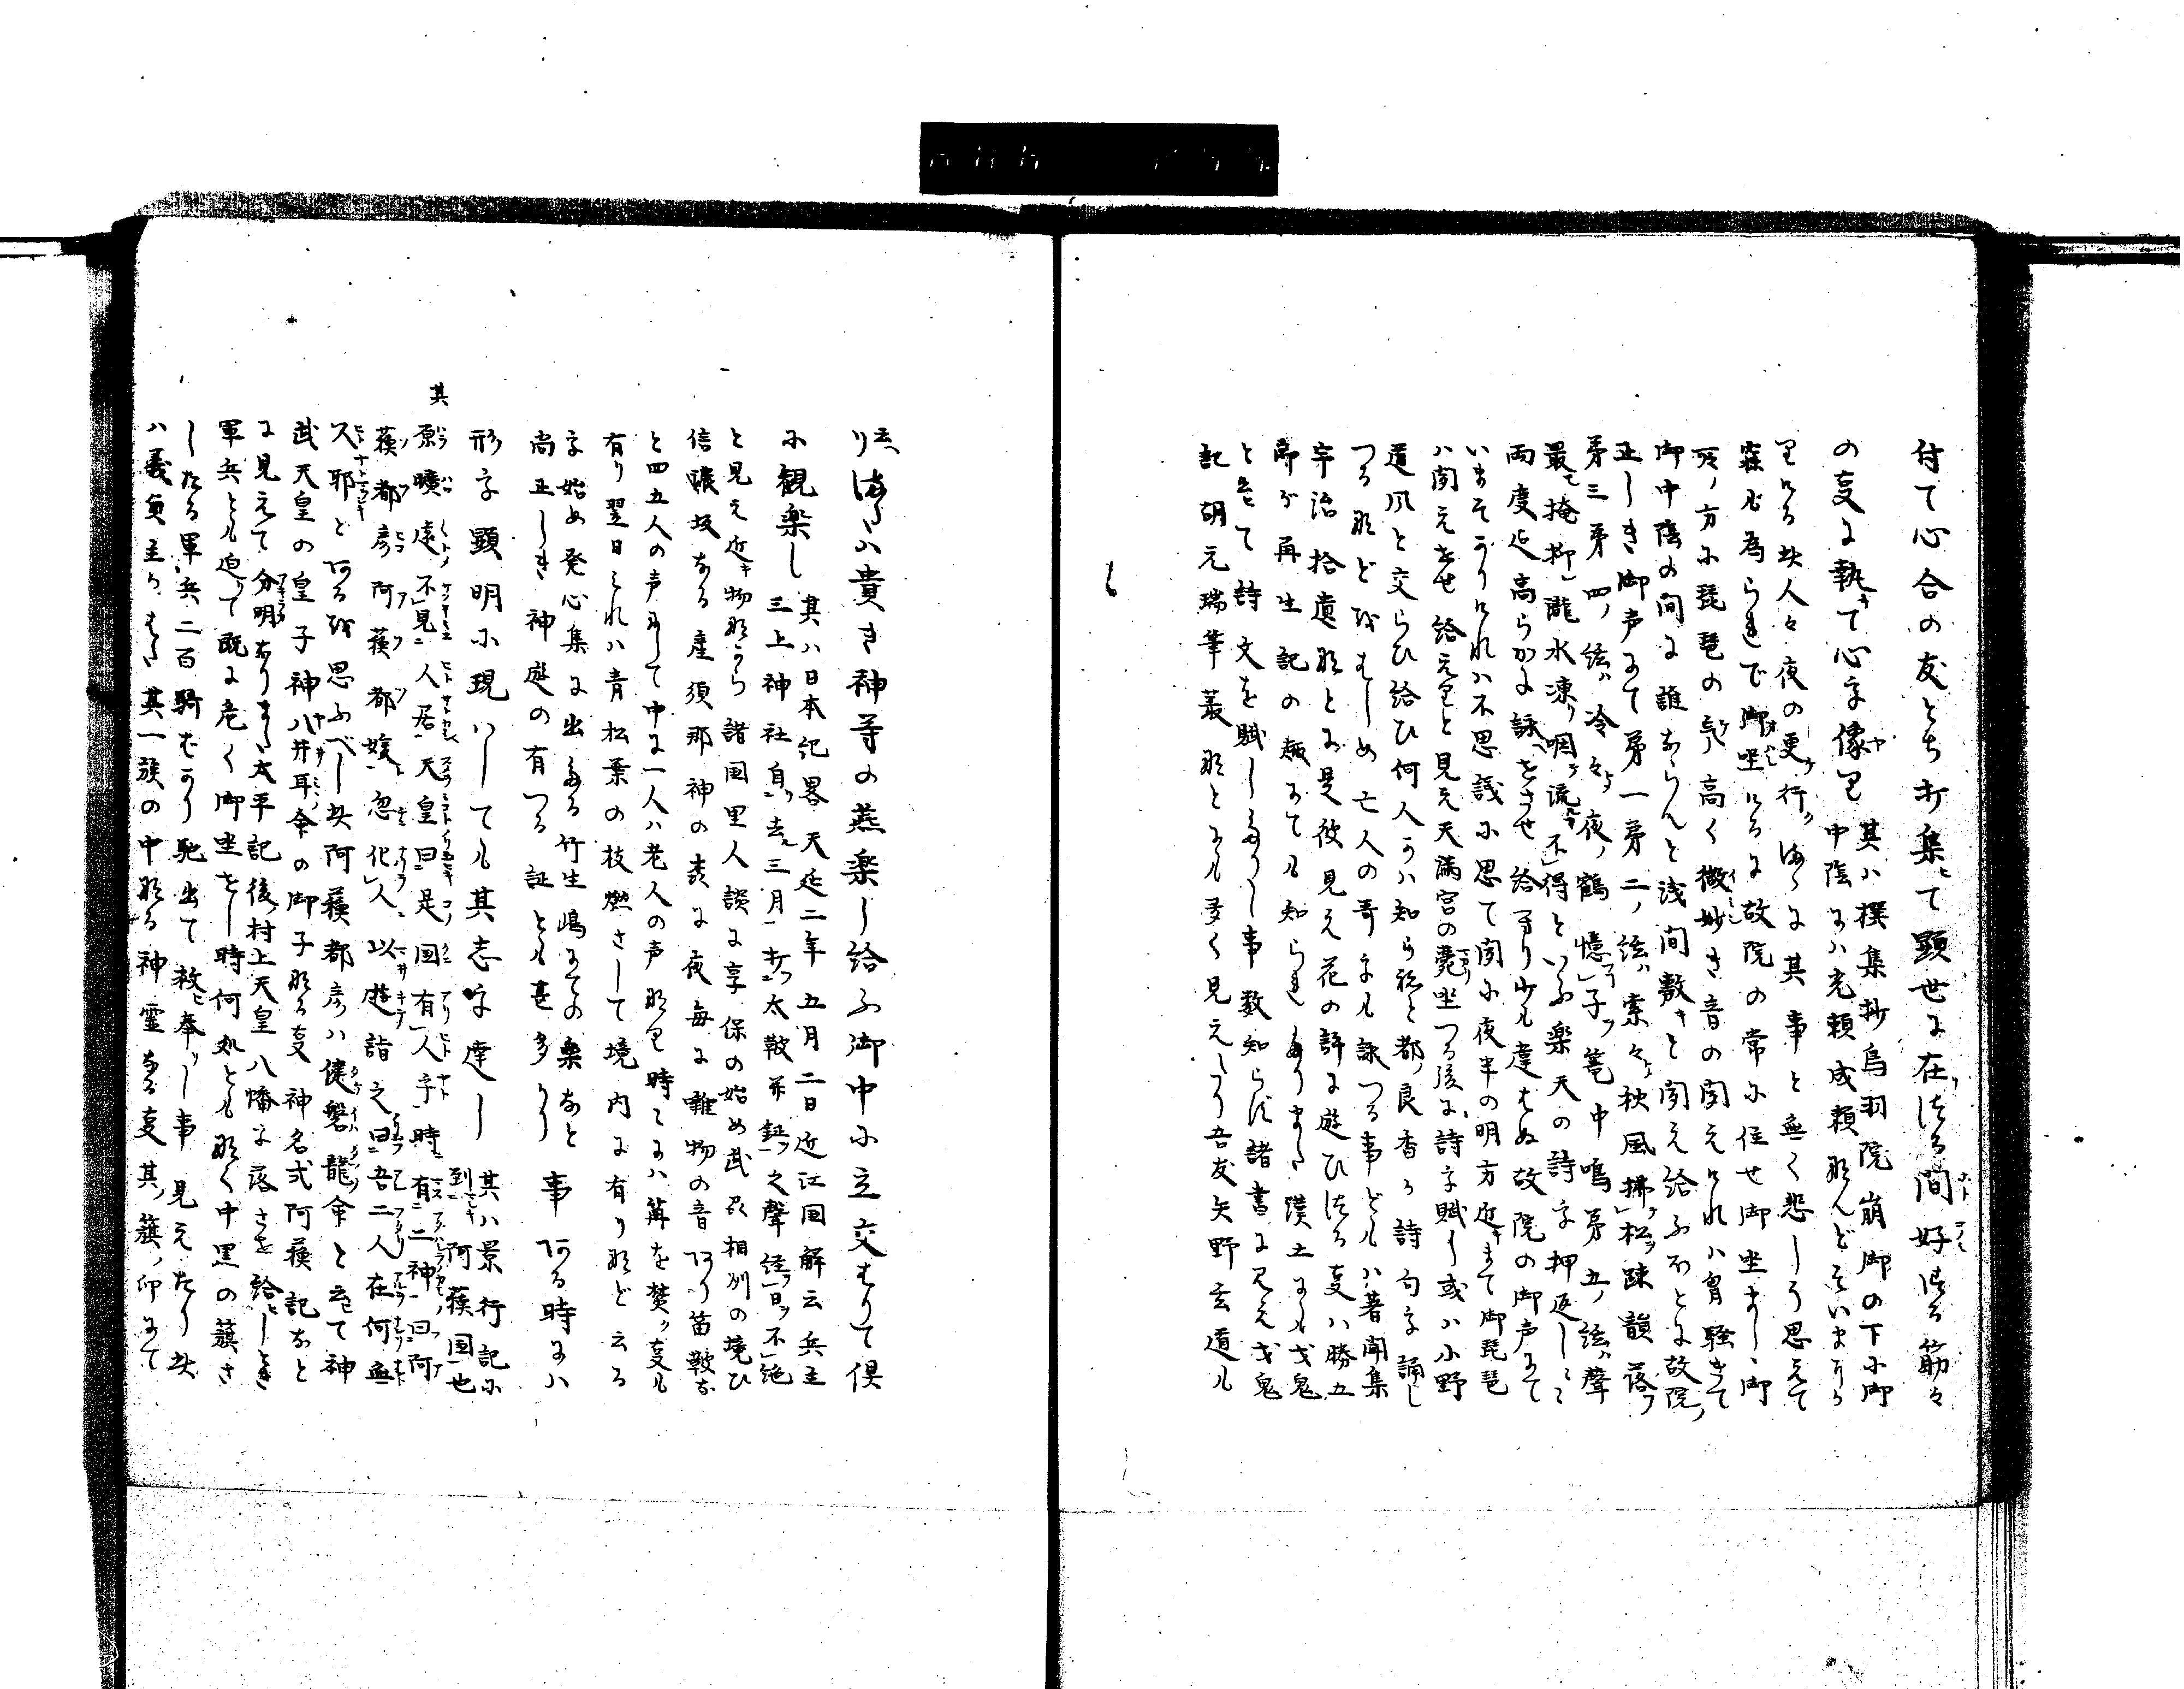 付て心合の友とち打集て顕世に在ける間好ける筋々
の事に執て心を像り
其ハ撰集抄鳥羽院崩御の下に御
中陰にハ光頼成頼などそいまそか
りける此人々夜の更行けるに其事と無く悲しう思えて
寐も為られで御坐けるに故院の常に住せ御坐しゝ御
所ノ方に琵琶の気高く微妙き音の聞えければ胸騒きて
御中陰の間に誰ならんと浅間敷と聞え給ふほとに故院ノ
正しき御声にて第一第二ノ絃ハ索々秋風拂松疎韻落
第三第四ノ絃ハ冷々夜ノ鶴憶子篭中鳴第五ノ絃ハ聲
最掩抑瀧水凍咽流不得といふ楽天の詩を押返しゝゝ
両度迄高らかに詠させ給ヘり少も違はぬ故院の御声にて
いまそかりければ不思議に思て聞に夜半の明方迄まて御琵琶
ハ聞えさせ給えりと見え天満宮の薨坐つる後に詩を賦し或ハ小野
道風と交らひ給ひ何人かハ知らねと都良香か詩句を誦し
つるなどをはしめ亡人の哥をも詠つる事どもハ著聞集
宇治拾遺なとに是彼見え花の許に遊ひける事ハ勝五
郎が再生記の趣にても知られたりまた漢土にも戈鬼
と云て詩文を賦したりし事数知らず諸書に見え戈鬼
記胡元瑞筆叢なとにも多く見えたり吾友矢野玄道も
云り
海々ハ貴き神等の燕楽し給ふ御中に立交はりて倶
に観楽し
其ハ日本紀畧天延二年五月二日近江国解云兵主
三上神社自去三月打太鞁并鉦之聲経日不絶
と見え近き物なから諸国里人談に享保の始め武刕相刕の境ひ
信驥坂なる産須那神の森に夜毎に囃物の音ありて笛鞁な
と四五人の声にして中に一人ハ老人の声なり時々にハ篝を焚ク事も
有り翌日これハ青松葉の枝燃さして境内に有りなど云る
を始め発心集に出たる竹生嶋にての楽なと
尚正しき神遊の有つる証とも甚多かり
事ある時にハ
形を顕明に現ハしても其志を達し
其ハ景行記に
到阿蘓国也
其
原曠遠不見人居天皇曰是国有人乎時有二神曰阿
蘓都彦阿蘓都媛忽化人以遊詣之曰吾二人在何無
人耶とあるを思ふべし此阿蘓都彦ハ健磐龍命と云て神
武天皇の皇子神八井耳命の御子なる事神名式阿蘓記なと
に見えて分明なりまた太平記後村上天皇八幡を落させ給しとき
軍兵とも迫て既に危く御坐せし時何処ともなく中黒の籏さ
したる軍兵二百騎はかり馳出て救奉りし事見えたり此
ハ義貞主かはた其一族の中なる神霊なる事其ノ籏ノ印にて